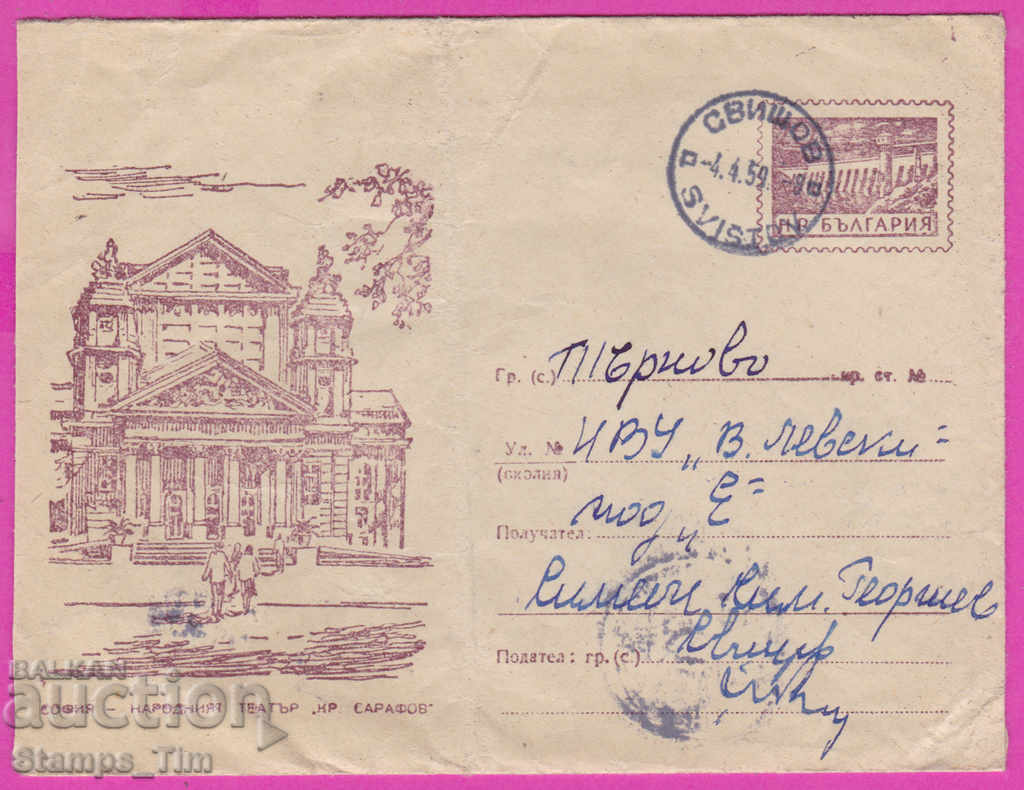 СВИЩОВ
-4.4.59.
SVISTOV
НР БЪЛГАРИЯ
Гр. (с.) Търново кр. ст. №
Ул. № НВУ „В. Левски"
(околия)
под „Е"
Получател:
Георгиев
Подател: гр. (с.)
СОФИЯ – НАРОДНИЯТ ТЕАТЪР „КР. САРАФОВ"
BALKAN
auction
Stamps_Tim